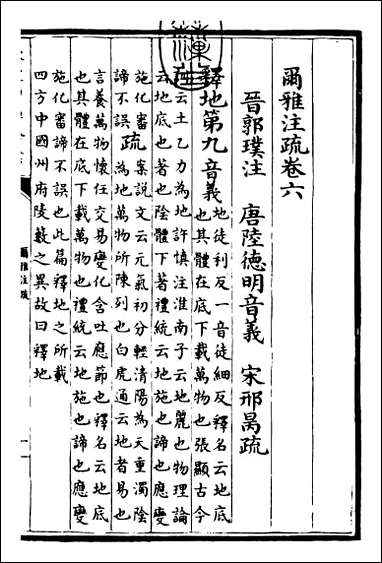 爾雅注疏卷六
晉郭璞注 唐陸德明音義 宋邢昺疏
釋地第九 音義 地徒利反一音徒細反釋名云地底
也其體在底下載萬物也張顯古今
云土乙力為地許慎注淮南子云地麗也物理論
云地底也著也陰體下著禮統云地施也諦也應變
施化審
諦不誤
疏 案說文云元氣初分輕清陽為天重濁陰
為地萬物所陳列也白虎通云地者易也
言養萬物懷任交易變化含吐應節也釋名云地底
也其體在底下載萬物也禮統云地施也諦也應變
施化審諦不誤也此篇釋地之所載
四方中國州府陵藪之異故曰釋地
爾雅注疏
一